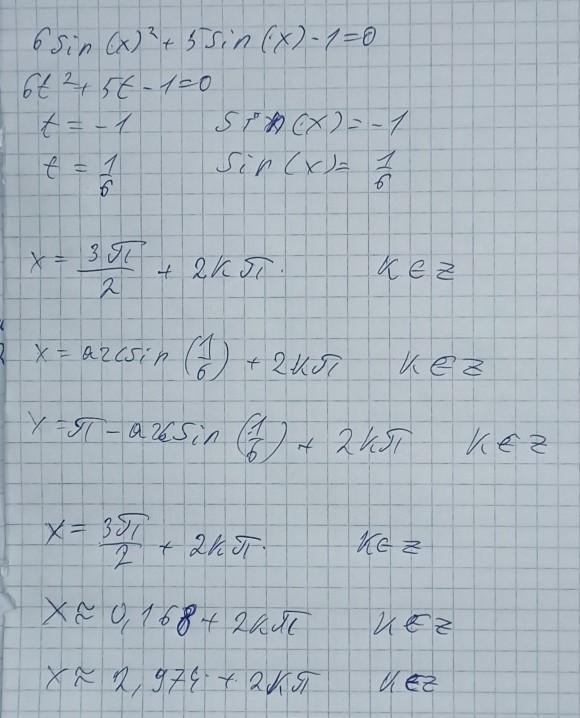 6 sin (x)² + 5 sin (x) - 1 = 0
6t² + 5t - 1 = 0
t = -1 sin (x) = -1
t = 1/6 sin (x) = 1/6
x = 3π/2 + 2kπ. k ∈ z
x = arcsin (1/6) + 2kπ k ∈ z
x = π - arcsin (1/6) + 2kπ k ∈ z
x = 3π/2 + 2kπ. k ∈ z
x ≈ 0,168 + 2kπ k ∈ z
x ≈ 2,974 + 2kπ k ∈ z